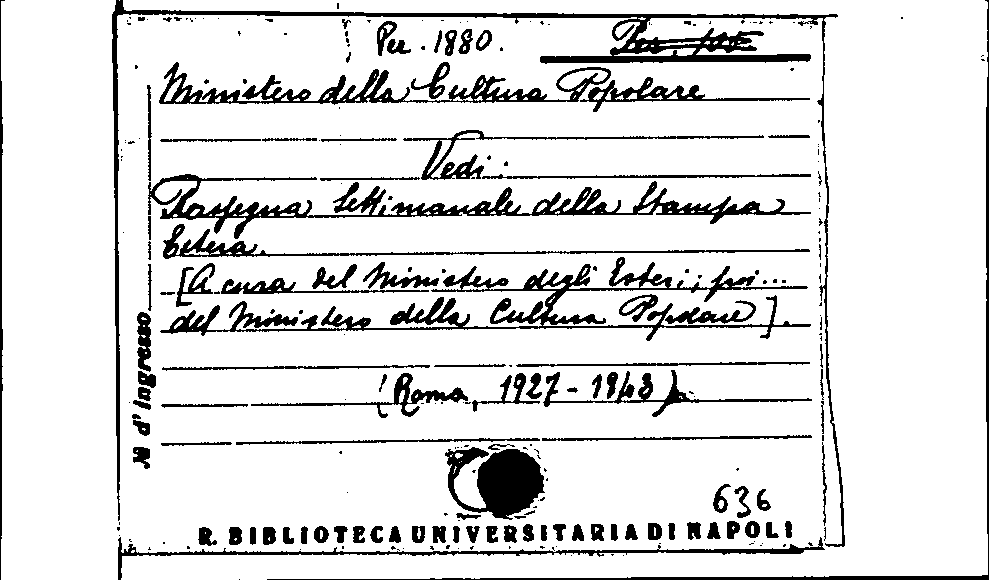 Per. 1880.
Ministero della Cultura Popolare
Vedi:
Rassegna Settimanale della Stampa
Estera.
[A cura del Ministero degli Esteri; poi...
del Ministero della Cultura Popolare].
(Roma, 1927-1943).
N d'ingresso
636
R. BIBLIOTECA UNIVERSITARIA DI NAPOLI